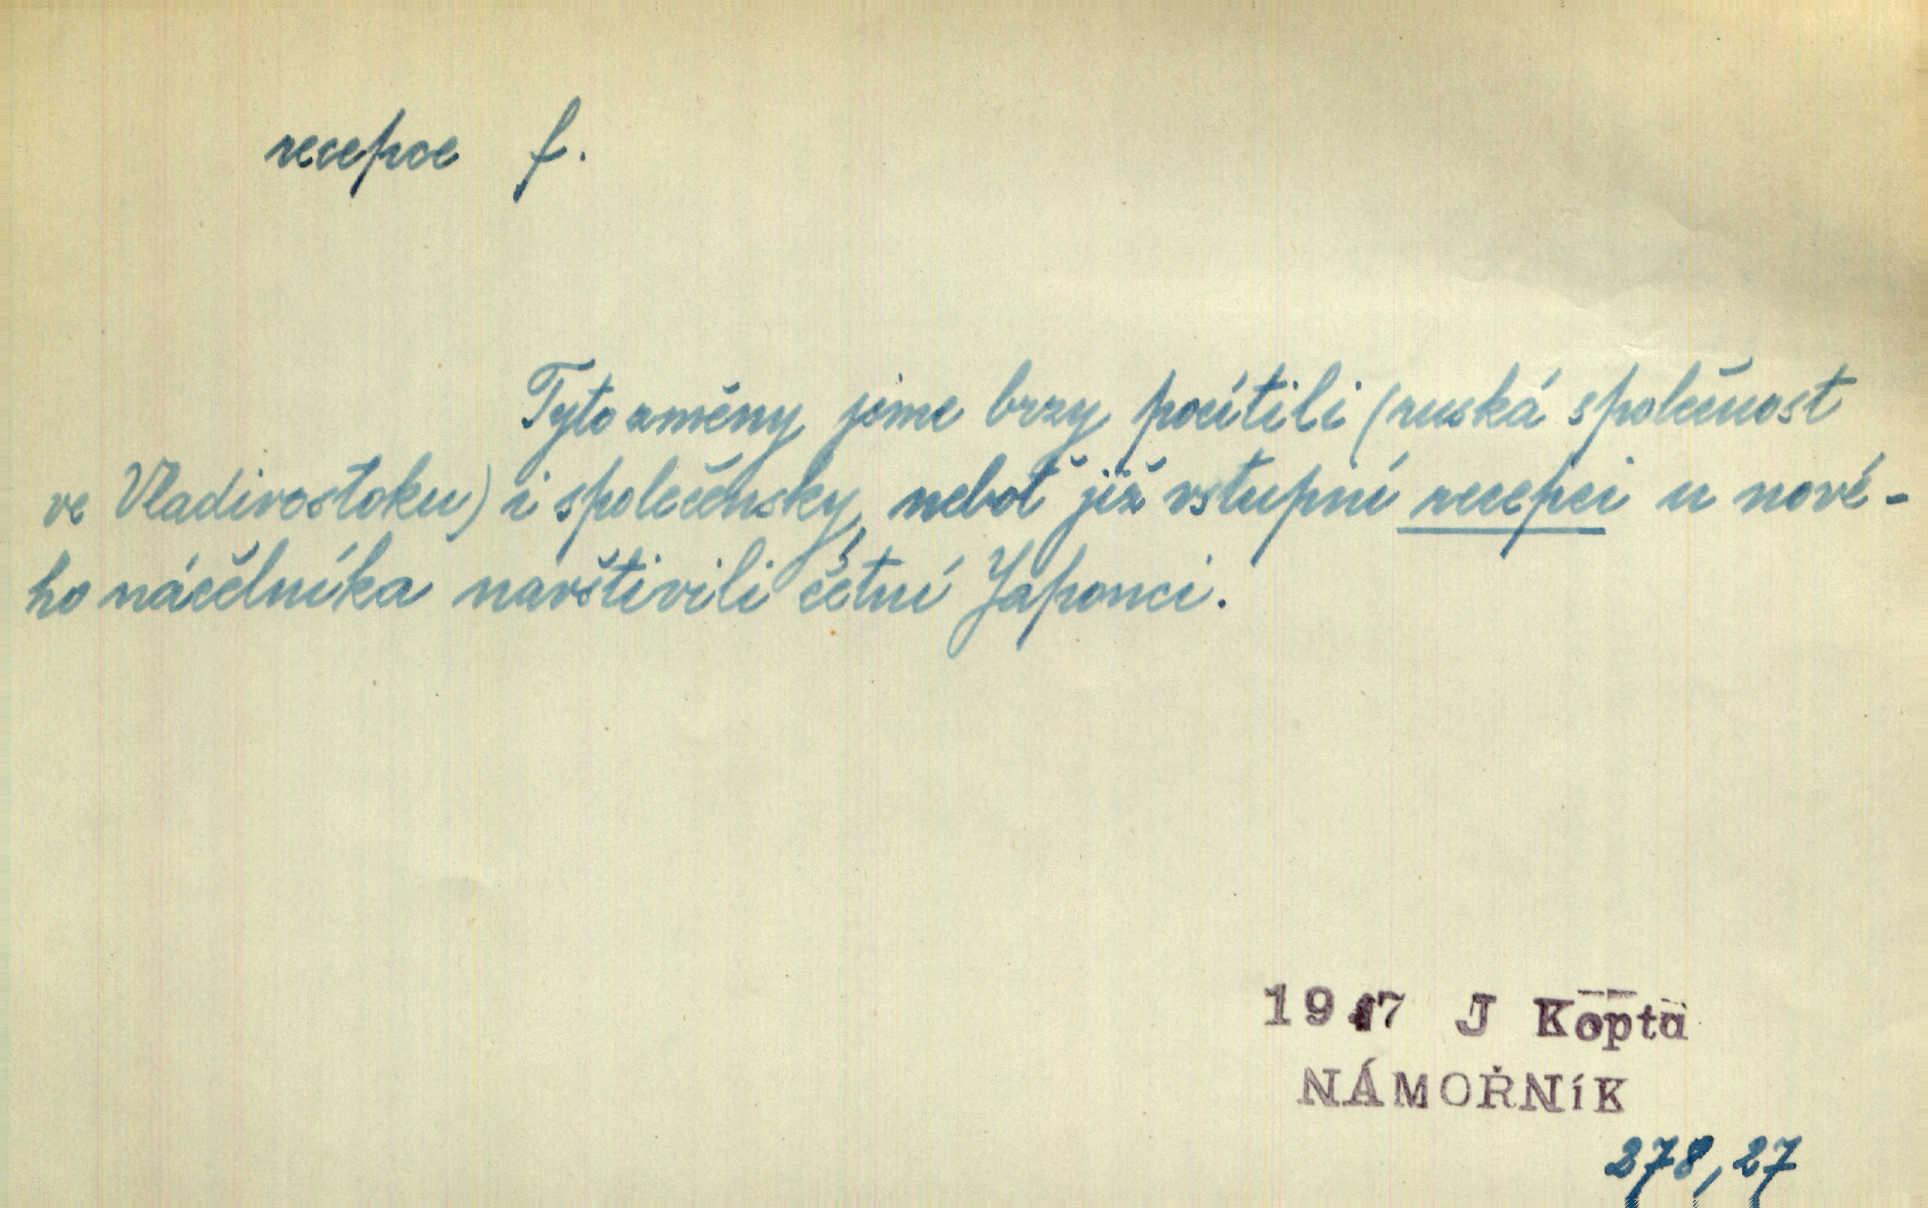 recepce f.
Tyto změny jsme brzy pocítili (ruská společnost
ve Vladivostoku) i společensky, neboť již vstupní recepci u nové-
ho náčelníka navštívili četní Japonci.
19 7 J Kopta
NÁMOŘNÍK
278,27